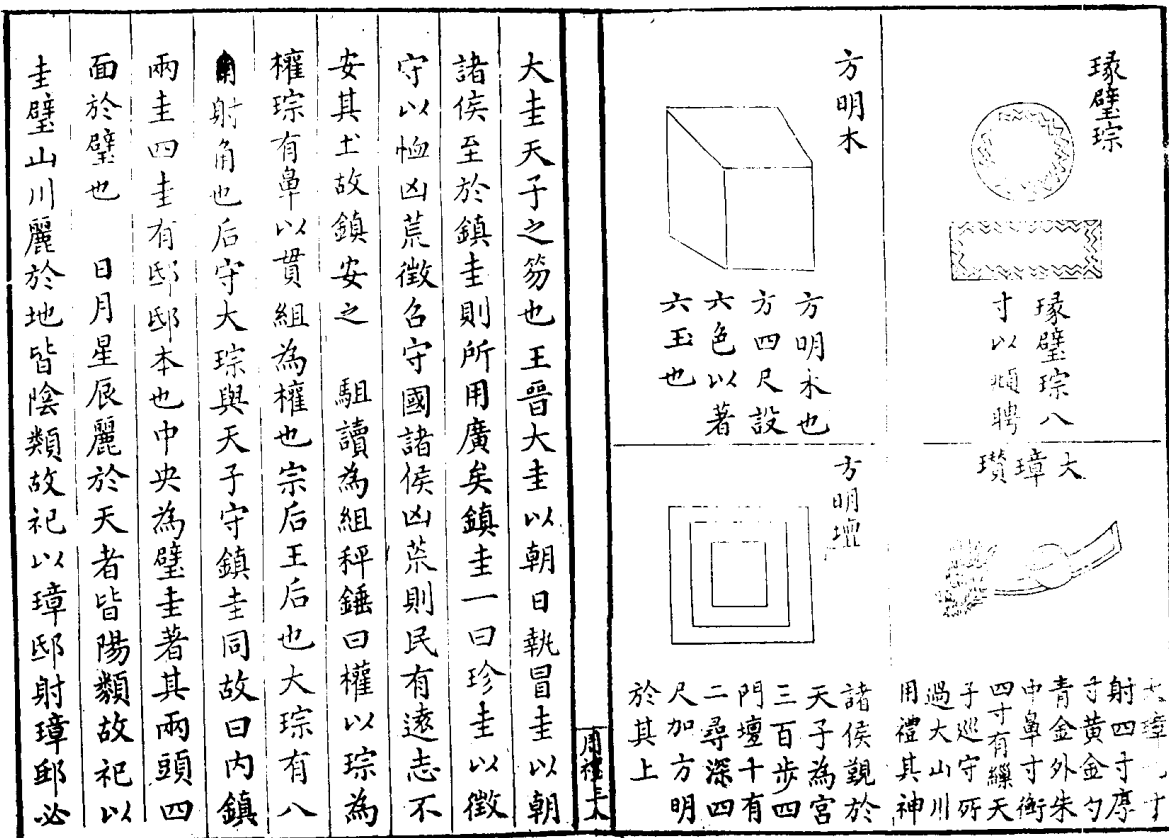 瑑璧琮
瑑璧琮八
寸以頫聘
方明木
方明木也
方四尺設
六色以著
六玉也
大璋瓚
大璋九寸
射四寸厚
寸黃金勺
青金外朱
中鼻寸衡
四寸有繅天
子巡守所
過大山川
用禮其神
方明壇
諸侯覲於
天子為宮
三百步四
門壇十有
二尋深四
尺加方明
於其上
周禮三
大圭天子之笏也王晉大圭以朝日執冒圭以朝
諸侯至於鎮圭則所用廣矣鎮圭一曰珍圭以徵
守以恤凶荒徵召守國諸侯凶荒則民有遠志不
安其土故鎮安之　駔讀為組秤錘曰權以琮為
權琮有鼻以貫組為權也宗后王后也大琮有八
角射角也后守大琮與天子守鎮圭同故曰內鎮
兩圭四圭有邸邸本也中央為璧圭著其兩頭四
面於璧也　日月星辰麗於天者皆陽類故祀以
圭璧山川麗於地皆陰類故祀以璋邸射璋邸必